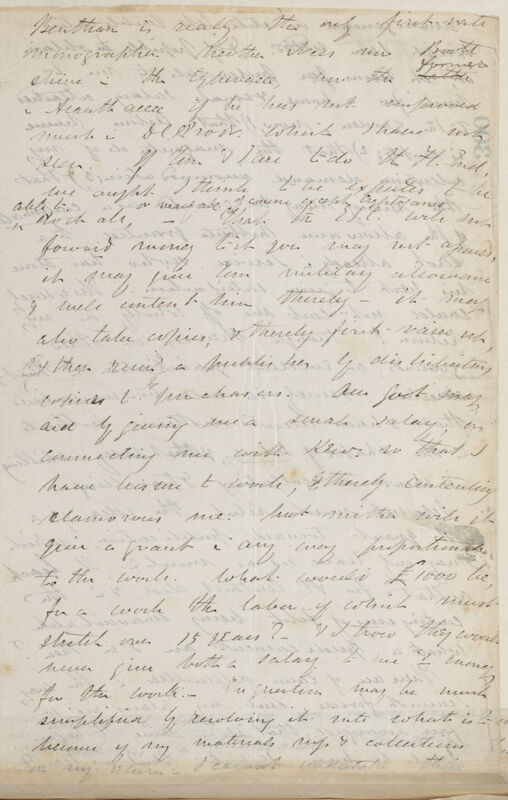 Bentham is really the only first-rate
monographer neither Nees nor
shine in the former, nor the latter
in Acanthaceae if he has not improved
much in DC Prodr. which I have not
seen. If Tom & I are to do the Fl. Ind.
we ought I think to be expected to be
able to or manage of course except Cryptogams
do it all, — That the E.I.C. will not
forward money to it you may rest assured,
it may give Tom military allowance
& will content him thereby — it may
also take copies, & thereby first raise up,
& then ruin a publisher by distributing
copies to purchasers. Our govt may
aid by giving me a small salary, or
connecting me with Kew, so that I
have leisure to work, & thereby contenting
clamorous me. but neither will it
give a grant in any way proportionate
to the work. What would £1000 be,
for a work the labor of which must
stretch over 15 years? — & I trow they would
never give both a salary to me & money
for the work. — The question may be much
simplified by resolving it into what is to
become of my materials, mss & collections
on my return — I cannot